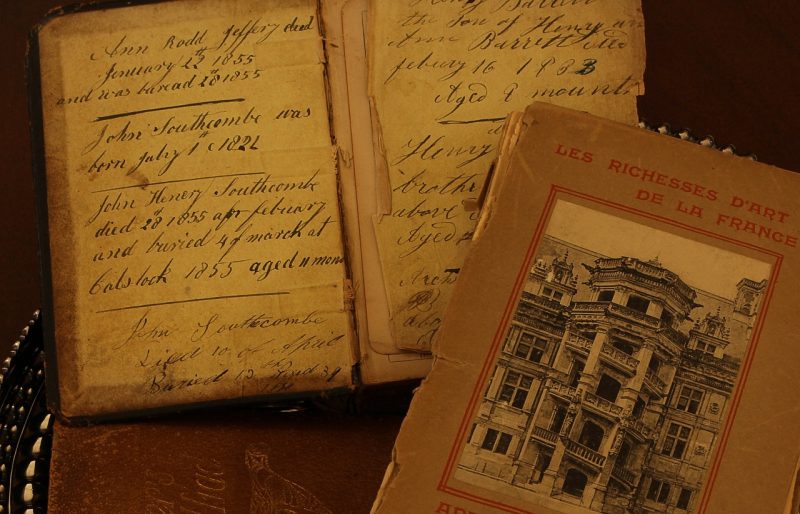 Ann Rodd Jeffery died
January 22th 1855
and was baread 28th 1855
John Southcombe was
born July 1st 1822
John Henery Southcombe
died 28th 1855 apr febuary
and buried 4th march at
Calstock 1855 aged 11 mon
John Southcombe
Died 10 of April
Buried 13th
the Son of Henry an
Ann Barrett died
febury 16 1833
Aged 9 mounth
Henry
brothe
above
Aged
LES RICHESSES D'ART
DE LA FRANCE